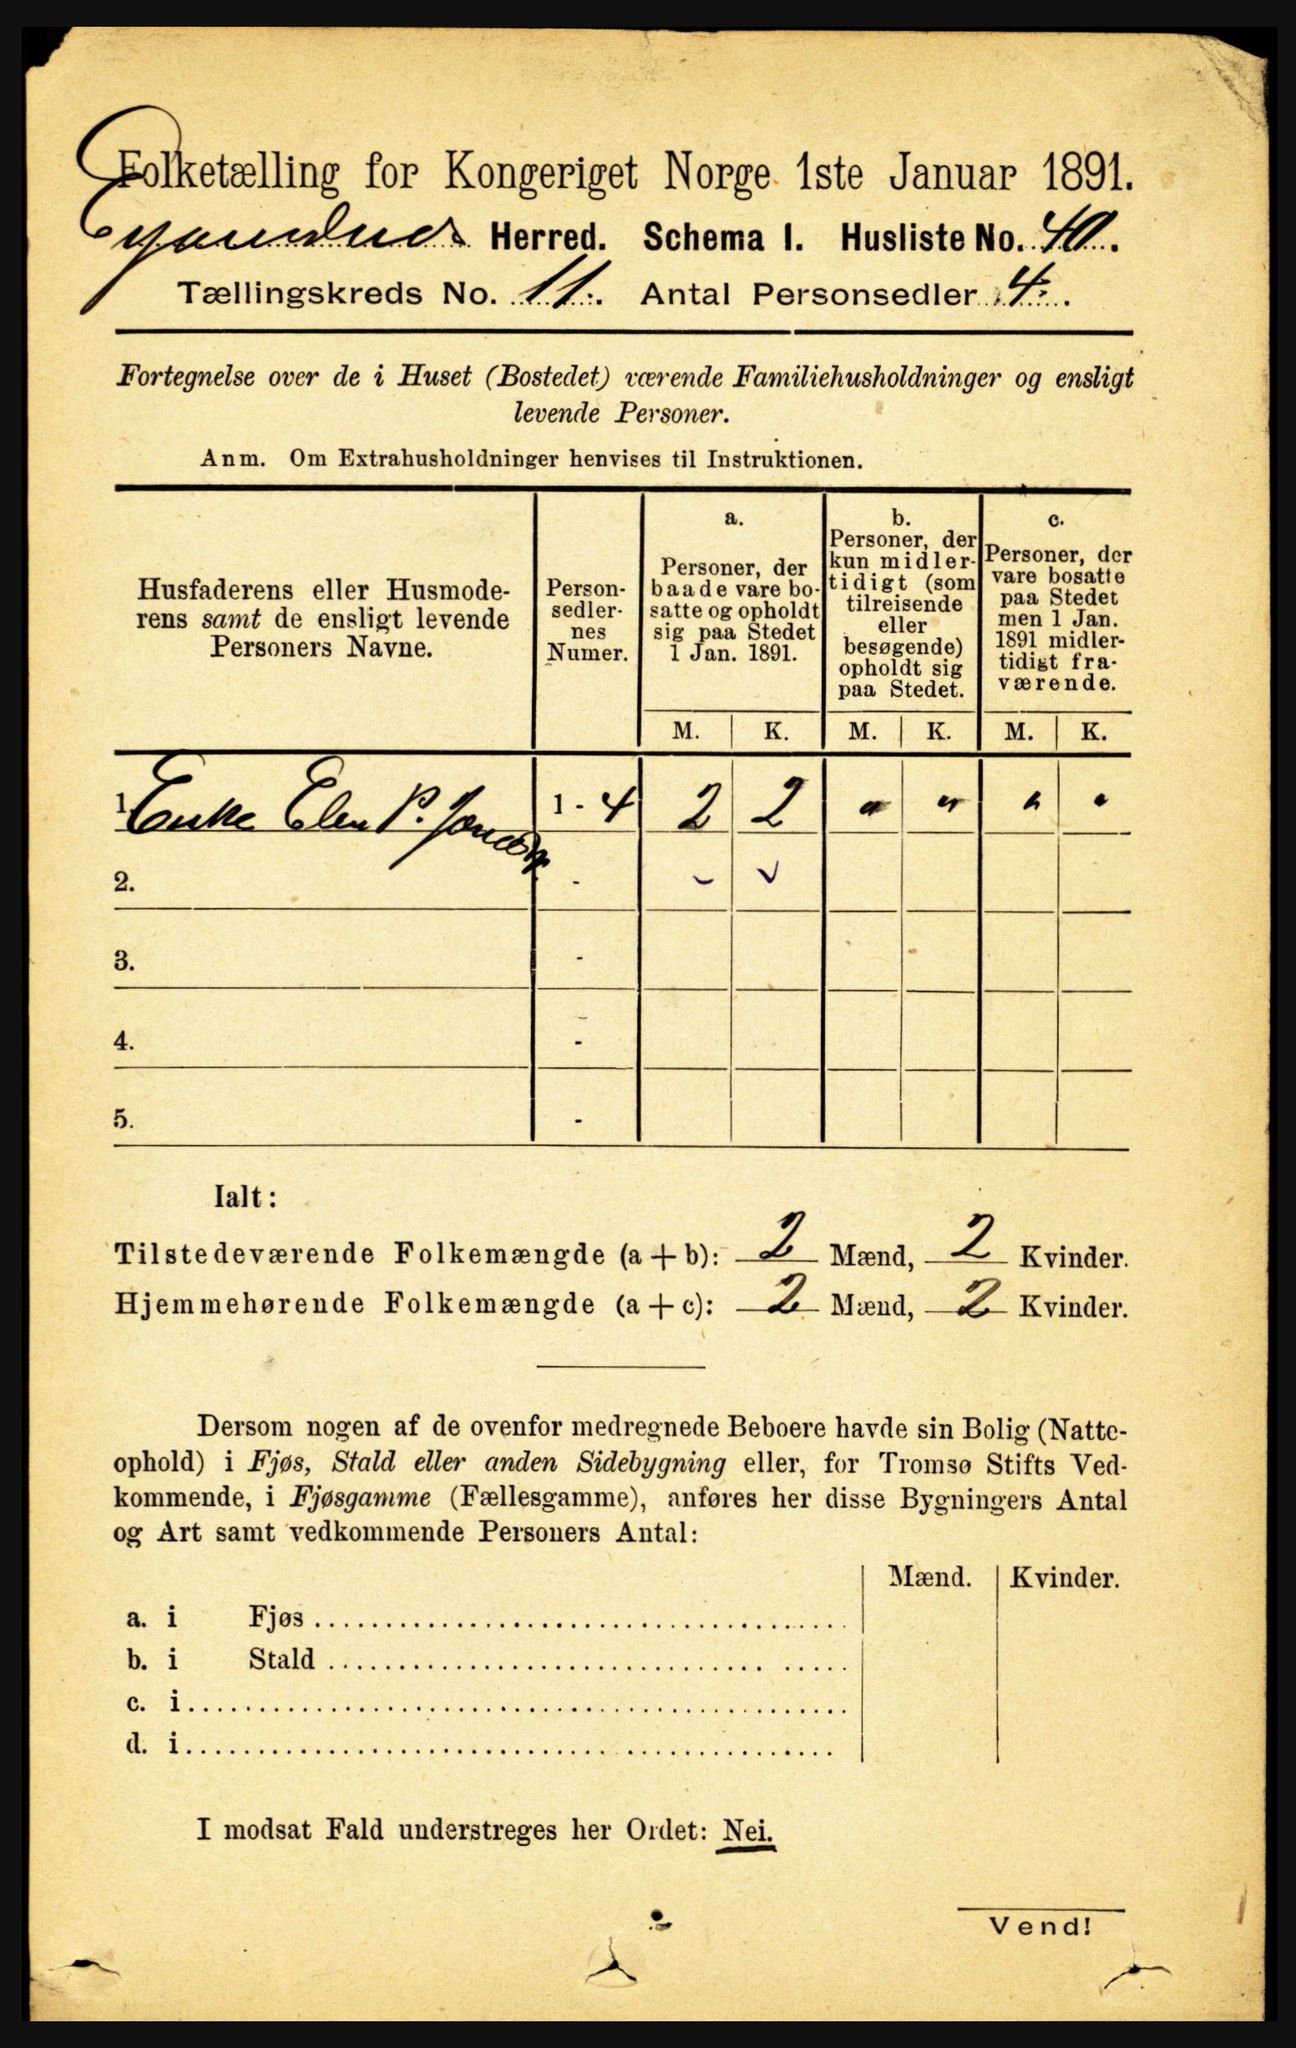 Folketælling for Kongeriget Norge 1ste Januar 1891.
Herred. Schema I. Husliste No. 40.
Tællingskreds No. 11. Antal Personsedler 4.
Fortegnelse over de i Huset (Bostedet) værende Familiehusholdninger og ensligt
levende Personer.
Anm. Om Extrahusholdninger henvises til Instruktionen.
Husfaderens eller Husmode-
rens samt de ensligt levende
Personers Navne.
Person-
sedler-
nes
Numer.
a.
Personer, der
baade vare bo-
satte og opholdt
sig paa Stedet
1 Jan. 1891.
b.
Personer, der
kun midler-
tidigt (som
tilreisende
eller
besøgende)
opholdt sig
paa Stedet.
c.
Personer, der
vare bosatte
paa Stedet
men 1 Jan.
1891 midler-
tidigt fra-
værende.
M. K. M. K. M. K.
1. Enke Elen P. 1 - 4 2 2 " " " "
2. -
3. -
4. -
5. -
Ialt:
Tilstedeværende Folkemængde (a + b): 2 Mænd, 2 Kvinder.
Hjemmehørende Folkemængde (a + c): 2 Mænd, 2 Kvinder.
Dersom nogen af de ovenfor medregnede Beboere havde sin Bolig (Natte-
ophold) i Fjøs, Stald eller anden Sidebygning eller, for Tromsø Stifts Ved-
kommende, i Fjøsgamme (Fællesgamme), anføres her disse Bygningers Antal
og Art samt vedkommende Personers Antal:
Mænd. Kvinder.
a. i Fjøs
b. i Stald
c. i
d. i
I modsat Fald understreges her Ordet: Nei.
Vend!